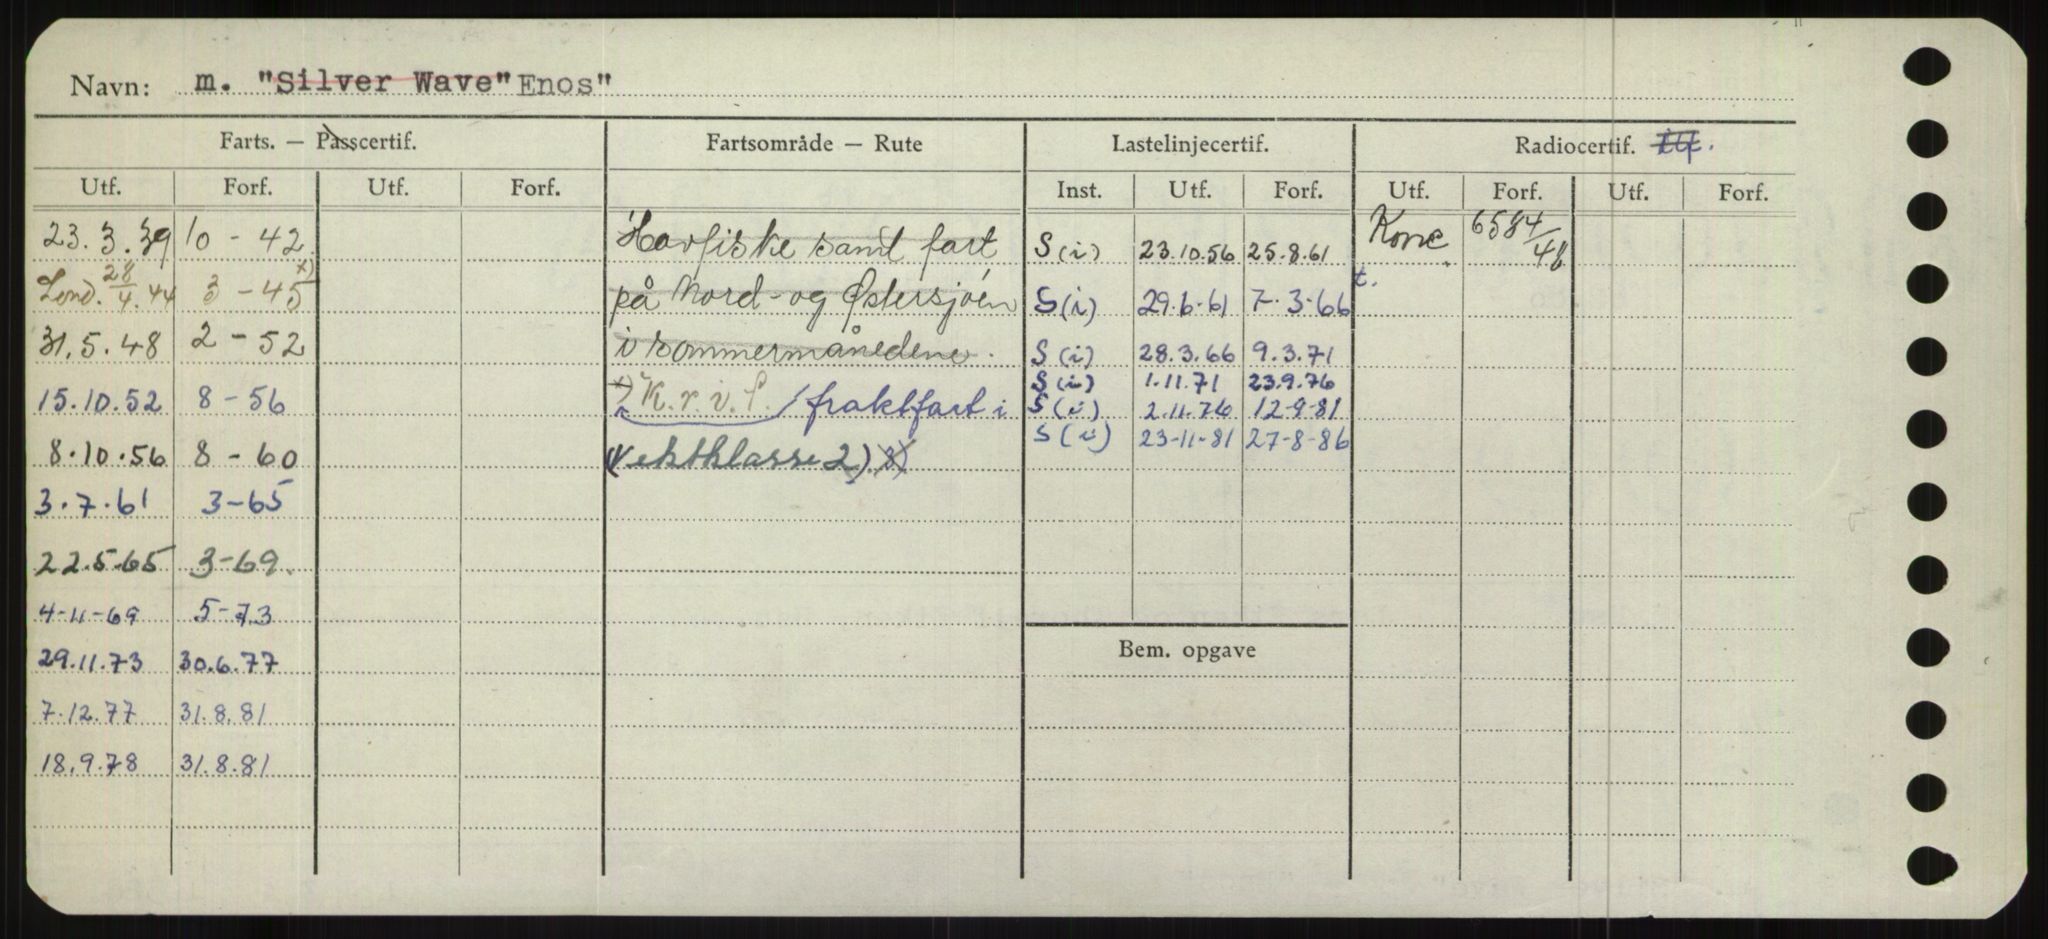 Navn: m. "Silver Wave" Enos"
Farts. — Passcertif. Fartsområde — Rute Lastelinjecertif. Radiocertif.
Utf. Forf. Utf. Forf. Inst. Utf. Forf. Utf. Forf. Utf. Forf.
23.3.39 10-42 Havfiske samt fart S(i) 23.10.56 25.8.61 Konc 6584/48
Lond. 28/4.44 3-45 x) på Nord- og Østersjøen S(i) 29.6-61 7-3-66 t.
31.5.48 2-52 i sommermånedene. S(i) 28.3.66 9.3.71
S(i) 1.11.71 23.9.76
15.10.52 8-56 x) K.r.v.f. / fraktfart i S(i) 2.11.76 12-9-81
S(i) 23-11-81 27-8-86
8.10.56 8-60 (Vektklasse 2)
3.7.61 3-65
22.5.65 3-69.
4-11-69 5-73
29.11.73 30.6.77 Bem. opgave
7.12.77 31.8.81
18.9.78 31.8.81